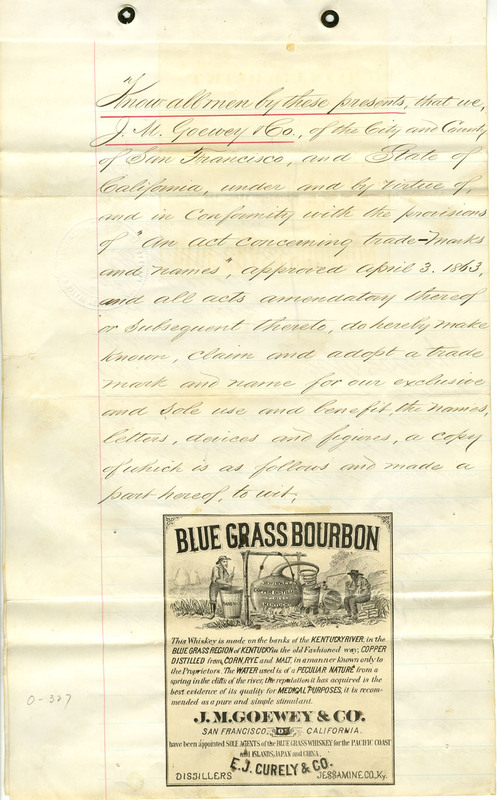 Know all men by these presents, that we,
J. M. Goewey & Co., of the City and County
of San Francisco, and State of
California, under and by virtue of,
and in Conformity with the provisions
of "An act concerning trade-marks
and names", approved April 3. 1863,
and all acts amendatory thereof
or subsequent thereto, do hereby make
known, claim and adopt a trade
mark and name for our exclusive
and sole use and benefit, the names,
letters, devices and figures, a copy
of which is as follows and made a
part hereof, to wit,
BLUE GRASS BOURBON
This Whiskey is made on the banks of the KENTUCKY RIVER, in the
BLUE GRASS REGION of KENTUCKY in the old Fashioned way, COPPER
DISTILLED from CORN, RYE and MALT, in a manner known only to
the Proprietors. The WATER used is of a PECULIAR NATURE from a
spring in the cliffs of the river, the reputation it has acquired is the
best evidence of its quality for MEDICAL PURPOSES, it is recom-
mended as a pure and simple stimulant.
J.M. GOEWEY & CO.
SAN FRANCISCO, OF CALIFORNIA.
have been appointed SOLE AGENTS of the BLUE GRASS WHISKEY for the PACIFIC COAST
and ISLANDS, JAPAN and CHINA.
E.J. CURELY & CO.
DISTILLERS JESSAMINE CO, Ky.
0-327